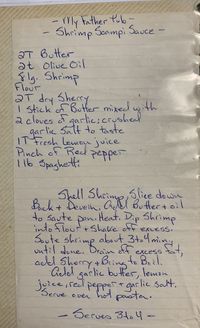 - My Father Pub -
- Shrimp Scampi Sauce -
2T Butter
2t Olive Oil
8 lg. Shrimp
Flour
2T dry Sherry
1 Stick of Butter mixed with
2 cloves of garlic; crushed
garlic Salt to taste
1T Fresh Lemon juice
Pinch of Red pepper
1 lb Spaghetti
Shell Shrimp, Slice down
Back + Devein. Add Butter + oil
to saute pan. Heat. Dip Shrimp
into Flour + Shake off excess.
Saute shrimp about 3 to 4 min
until done. Drain off excess fat,
add Sherry + Bring to Boil.
Add garlic butter, lemon
juice, red pepper + garlic salt.
Serve over hot pasta.
- Serves 3 to 4 -